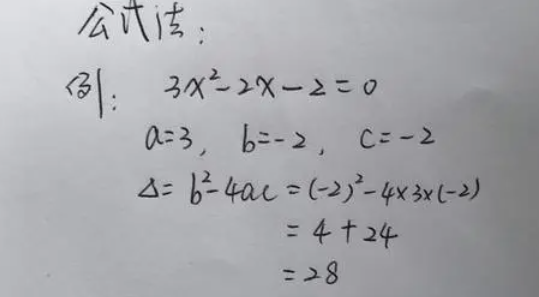 公式法：
例： 3x²-2x-2=0
a=3, b=-2, c=-2
Δ=b²-4ac=(-2)²-4×3×(-2)
=4+24
=28